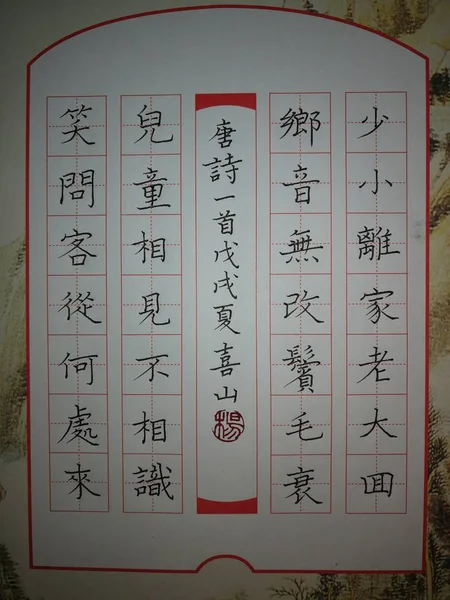 少小離家老大囬
鄉音無改鬢毛衰
唐詩一首戊戌夏喜山
楊
兒童相見不相識
笑問客從何處來